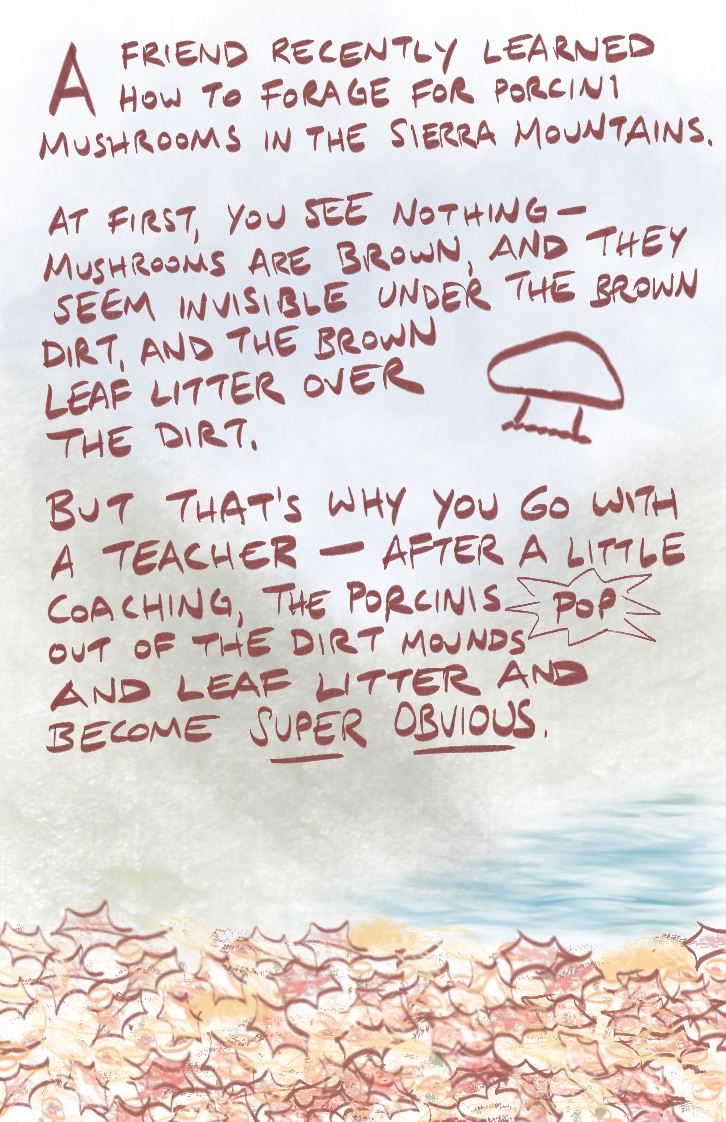 A FRIEND RECENTLY LEARNED
HOW TO FORAGE FOR PORCINI
MUSHROOMS IN THE SIERRA MOUNTAINS.
AT FIRST, YOU SEE NOTHING—
MUSHROOMS ARE BROWN, AND THEY
SEEM INVISIBLE UNDER THE BROWN
DIRT, AND THE BROWN
LEAF LITTER OVER
THE DIRT.
BUT THAT'S WHY YOU GO WITH
A TEACHER — AFTER A LITTLE
COACHING, THE PORCINIS POP
OUT OF THE DIRT MOUNDS
AND LEAF LITTER AND
BECOME SUPER OBVIOUS.